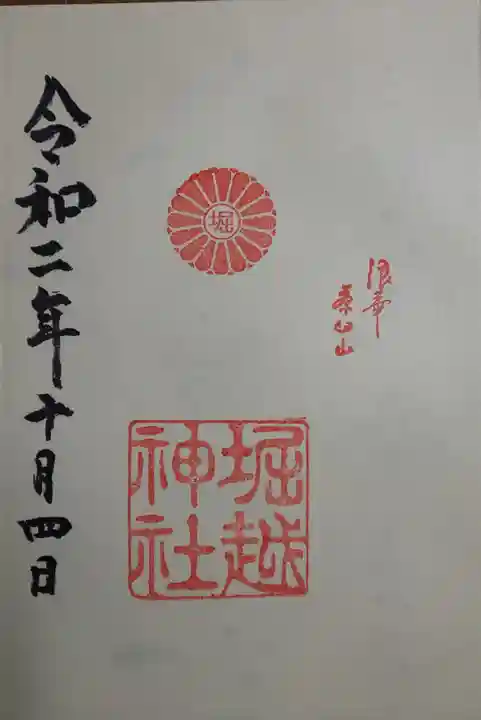 浪華
茶臼山
堀
堀越
神社
令和二年十月四日